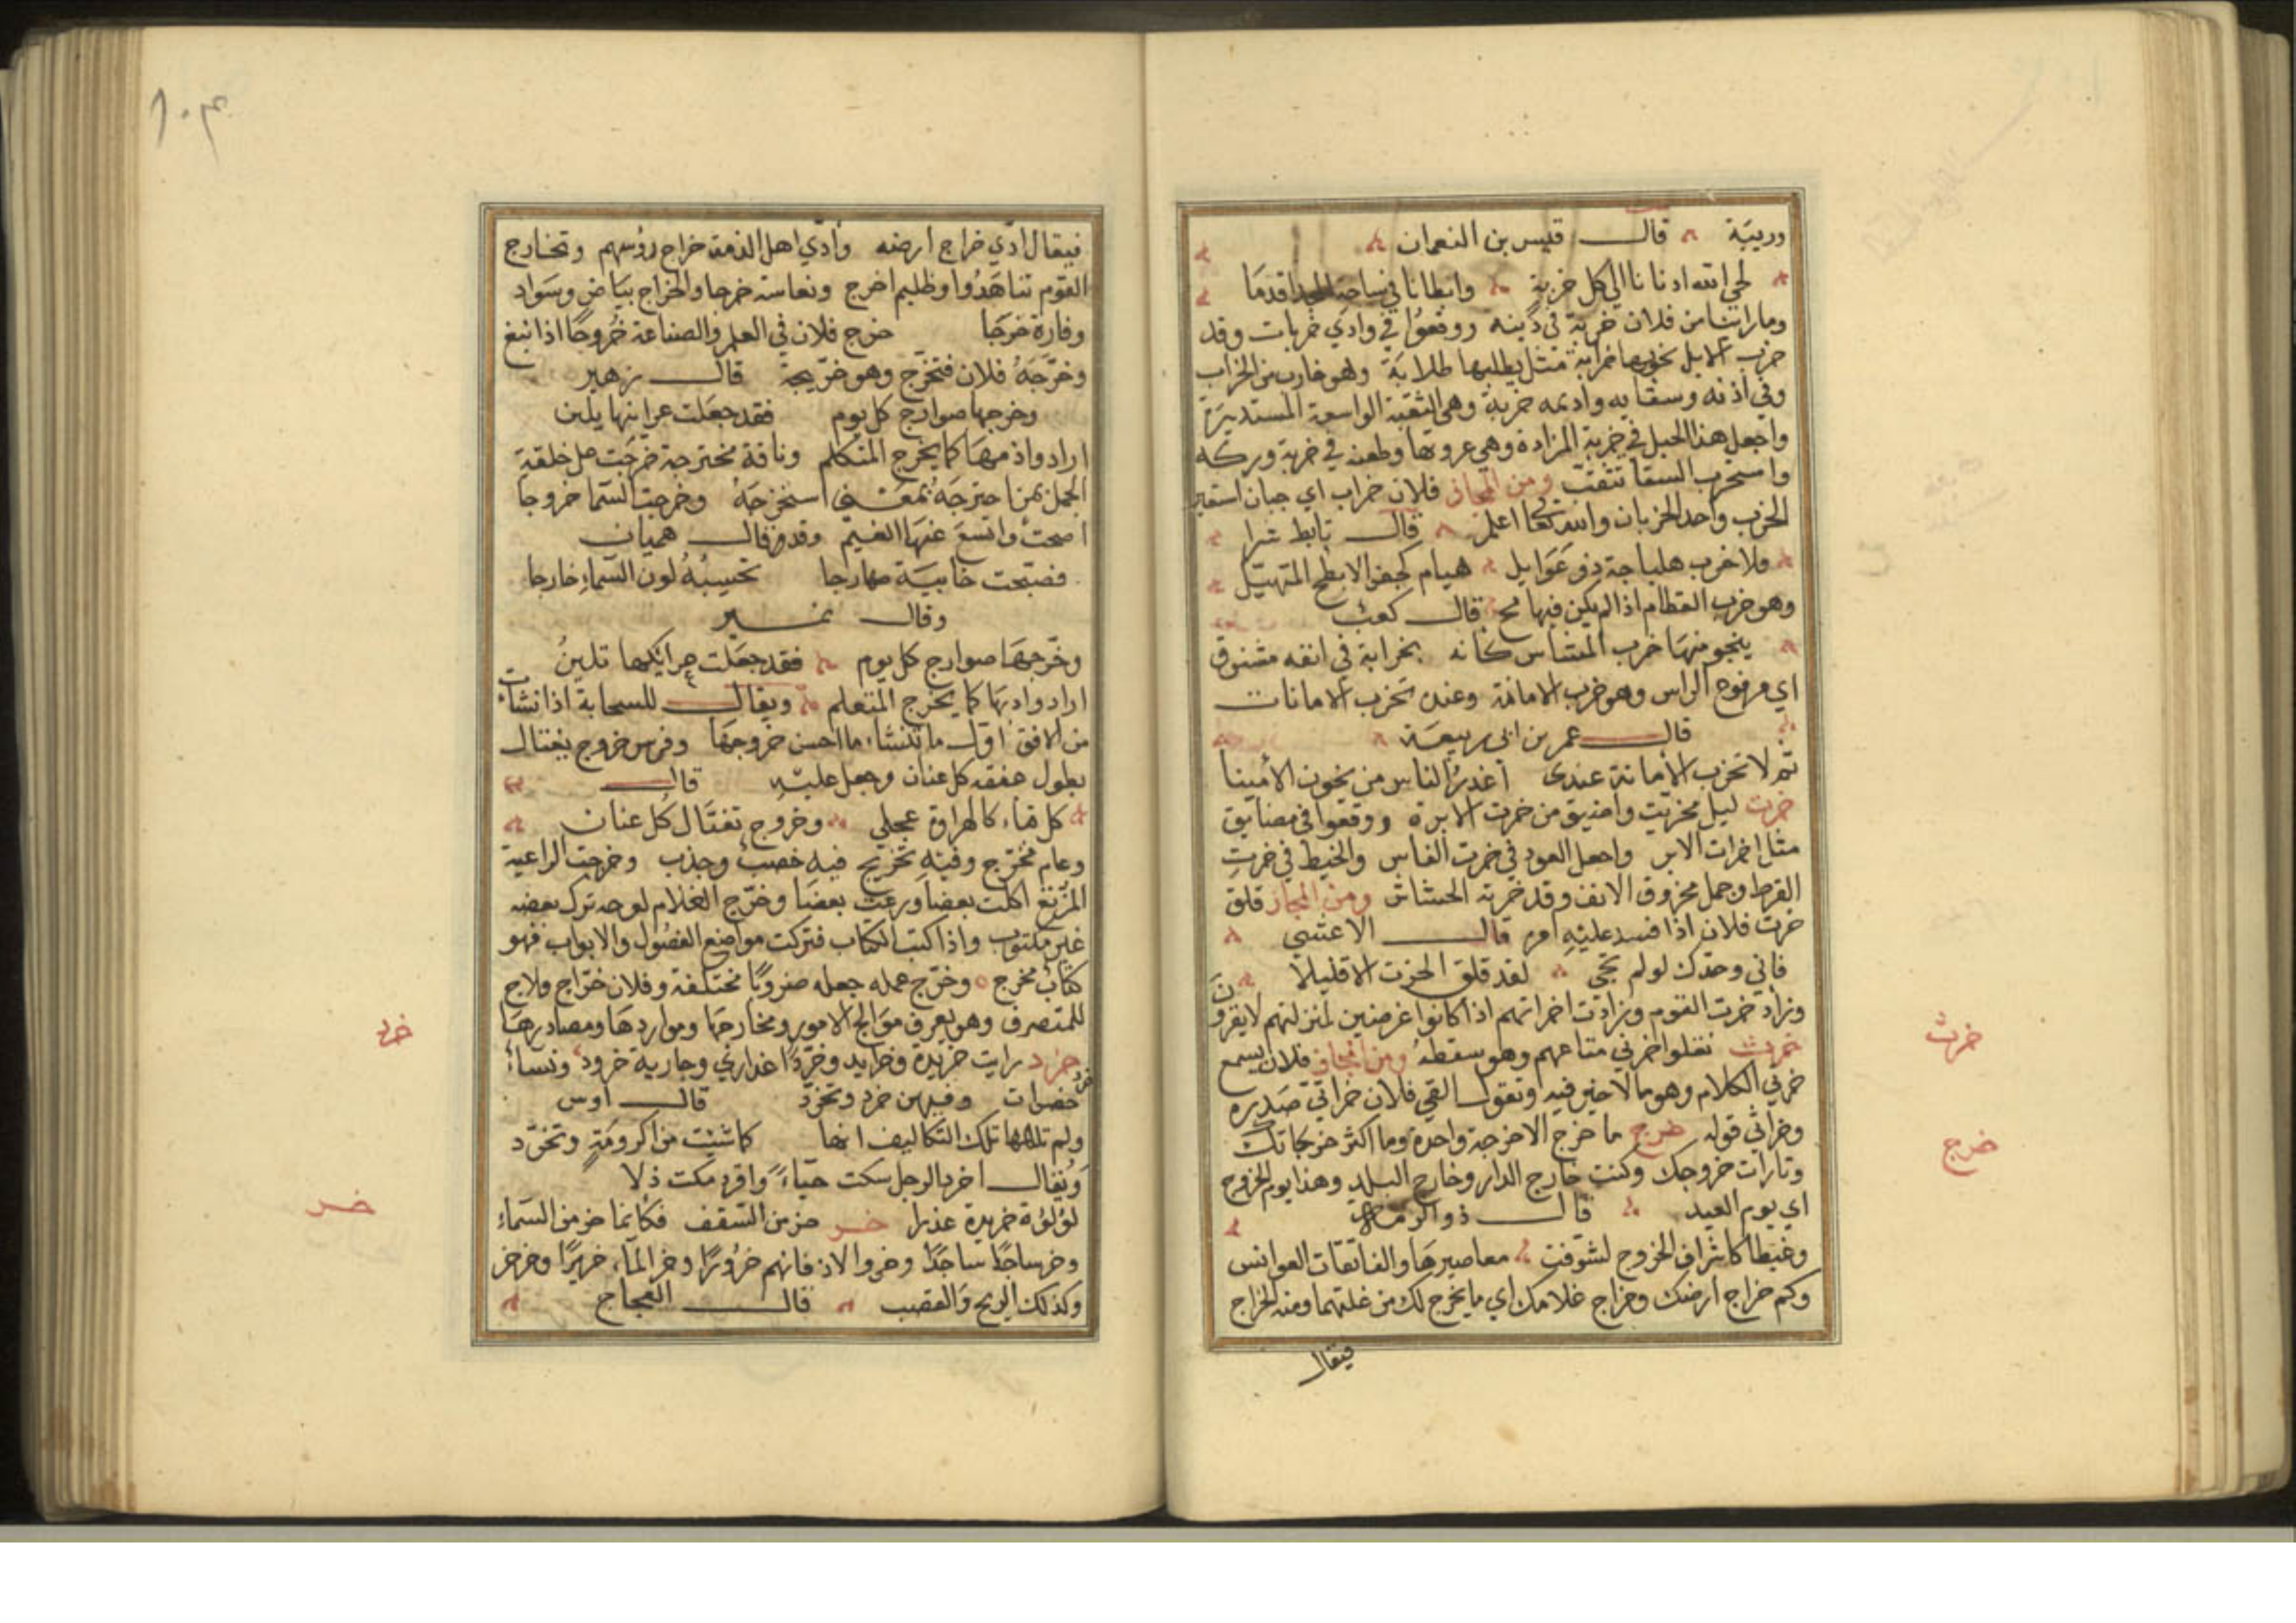 وريبة قال قيس بن النعمان
لحى الله ادنانا الي كل خزية وابطانا في ساحة المجد اقدمَا
وما راينا من فلان خربة في دينه ووقعوا في وادي خربات وقد
خرب الابل يخربها خرابة مثل يطلبها طلابة وهو خارب من الخراب
وفي اذنه وسقايه واديمه خربة وهي الثقبة الواسعة المستديرة
واجعل هذا الحبل في خربة المزادة وهي عروتها وطعنه في خربة وركه
واستخرب السقا تثقب ومن المجاز فلان خراب اي جبان استعير
الخرب واحد الخربان والله تعالى اعلم قال تابط شرا
ولا خرب هلباجة ذو غوايل هيام كجفر الابطح المتهيل
وهو خرب العظام اذا لم يكن فيها مخ قال كعب
ينجو منها خرب المشاس كانه بخرابة في انفه مشنوق
اي مرفوع الراس وهو خرب الامانة وعنده تخرب الامانات
قال عمر بن ابي ربيعة
ثم لا تخرب الامانة عندي اغدر الناس من يخون الأمينا
خرت ليل مخريت واضيق من خرت الابرة ووقعوا في مضايق
مثل اخرات الابر واجعل العود في خرت الفاس والخيط في خرت
القرط وجمل مخروت الانف وقد خرته الخشاش ومن المجاز قلق
خرت فلان اذا فسد عليه امره قال الاعشي
فاني وجدك لولم تجى لقد قلق الخرت الا قليلا
وزاد خرت القوم وزادت اخراتهم اذا كانوا غرضين لمنزلتهم لا يقرون
خرث نقلوا خرثي متاعهم وهو سقطه ومن المجاز فلان يسمع
خرثي الكلام وهو ما لا خير فيه وتقول القي فلان خراثي صدره
وخراثي قوله خرج ما خرج الا خرجة واحدة وما اكثر خرجاتك
وتارات خروجك وكنت خارج الدار وخارج البلد وهذا يوم الخروج
اي يوم العيد قال ذو الرمة
وغيطا كاشراف الخروج لشوفت معاصيرها والفاتقات العوانس
وكم خراج ارضك وخراج غلامك اي ما يخرج لك من غلتهما ومنه الخراج
فيقال
خرث
خرج
١٠٤
فيقال ادّي خراج ارضه وادّي اهل الذمة خراج رؤسهم وتخارج
القوم تناهدُوا وظليم اخرج ونعامة خرجا والخراج بيَاض وسَواد
وقارة خرجا خرج فلان في العلم والصناعة خُروجًا اذا نبغ
وخرّجَهُ فلان فتخرّج وهو خرّيجه قال زهير
وخرجها صوارج كل يوم فقد جعلت عرانها يلين
اراد وادبها كما يخرج المتكلم وناقة مخترجة خرجت على خلقة
الجمل من اخترجَهُ بمعنى استخرجَهُ وخرجت السّما خروجا
اصحت وانقشع عنها الغيم وقد مر قال هميان
فصبّحت خابيَة صهارجا تحسبُهُ لون السّماءِ خارجا
وقال زهير
وخرّجهَا صوارج كل يوم فقد جعَلت عرايكها تلينُ
اراد وادبها كما يخرج المتعلم ويقال للسحابة اذا نشات
من الافق اول ما تنشاء ما احسن خروجهَا وفرس خروج يغتال
بطول عنقه كل عنان وجعل عليه قال
كل قباء كالهراوة عجلي وخروج تغتال كل عنان
وعام مخرّج وفيهِ تخريج فيه خصب وجذب وخرجت الراعية
المرتع اكلت بعضا ورعت بعضَا وخرّج الغلام لوحه ترك بعضه
غير مكتوب واذا كتبت الكتاب فتركت مواضع الفصُول والابواب فهو
كتاب مخرج وخرّج عمله جعله ضروبًا مختلفة وفلان خرّاج ولاج
للمتصرف وهو يعرف موالج الامور ومخارجهَا ومواردهَا ومصادرهَا
خرد رايت خريدة وخرايد وخرّدًا عذاري وجارية خرود ونساءُ
خرد خضرات وفيهن خرد وتخرّد قال اوس
ولم تلهها تلك التكاليف انها كما شيت من اكرومَةٍ وتخرّد
وَيُقال اخرد الرجل سكت حيّاءً واقرد سكت ذلا
لؤلؤة خريدة عذرا خر خر من السّقف فكانما خر من السّماءِ
وخر ساجدًا وخروا لاذقانهم خرُورًا وخر المآء خريرًا وخرخر
وكذلك الريح والقصب قال العجاج
خرد
خر